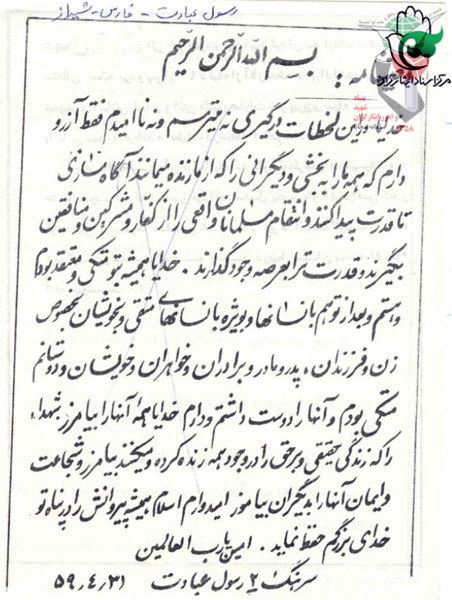 رسول عبادت - فارس - شیراز
بسم الله الرحمن الرحیم
خدایا درین لحظات درگیری نه میترسم و نه ناامیدم فقط آرزو
دارم که همه ما را ببخشی و دیگرانی را که از ما زنده میمانند آگاه سازی
تا قدرت پیدا کنند و انتقام مسلمانان واقعی را از کفار و مشرکین و منافقین
بگیرند و قدرت ترا بعرصه وجود گذارند. خدایا همیشه بتو متکی و معتقد بودم
و هستم و بعد از تو هم بانسانها و بویژه بانسانهای متقی و خویشان بخصوص
زن و فرزندان، پدر و مادر و برادران و خواهران و خویشان و دوستانم
متکی بودم و آنها را دوست داشتم و دارم خدایا همهٔ آنها را بیامرز شهداء
را که زندگی حقیقی و برحق را در وجود همه زنده کرده و میکنند بیامرز و شجاعت
و ایمان آنها را بدیگران بیاموز امیدوارم اسلام همیشه پیروانش را در پناه تو
خدای بزرگم حفظ نماید. امین یا رب العالمین
سرهنگ ۲ رسول عبادت ۵۹،۴،۳۱
مرکز اسناد ایثارگران